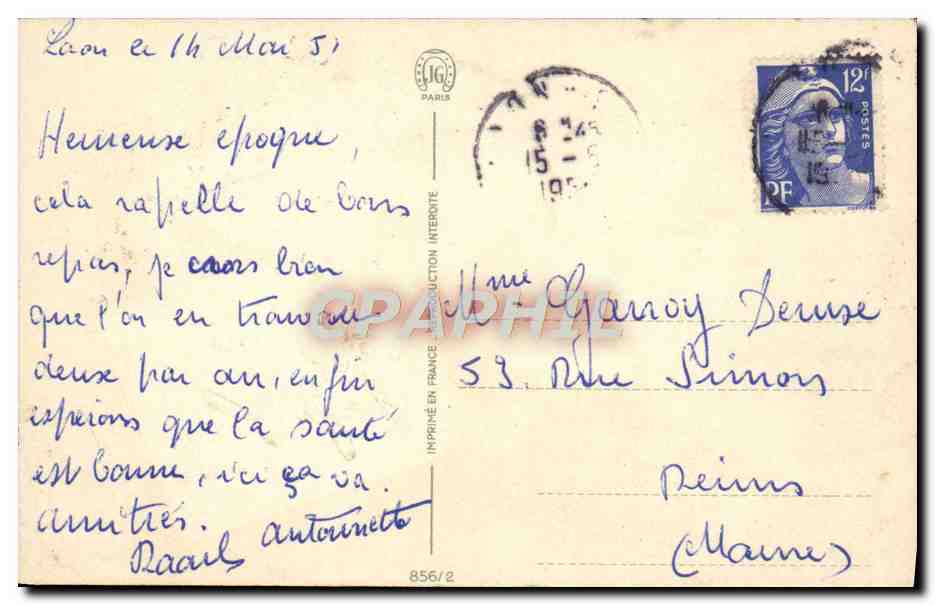 Laon le 14 Mai 51
Heureuse époque,
cela rapelle de bons
repas, je crois bien
que l'on en trouvait
deux par an, enfin
espérons que la santé
est bonne, ici ça va.
amitiés.
Raoul Antoinette
JG
PARIS
IMPRIMÉ EN FRANCE REPRODUCTION INTERDITE
856/2
CPARHIL
15 - 5
195
12F
POSTES
RF
Mme Garroy Denise
53, Rue Simon
Reims
(Marne)